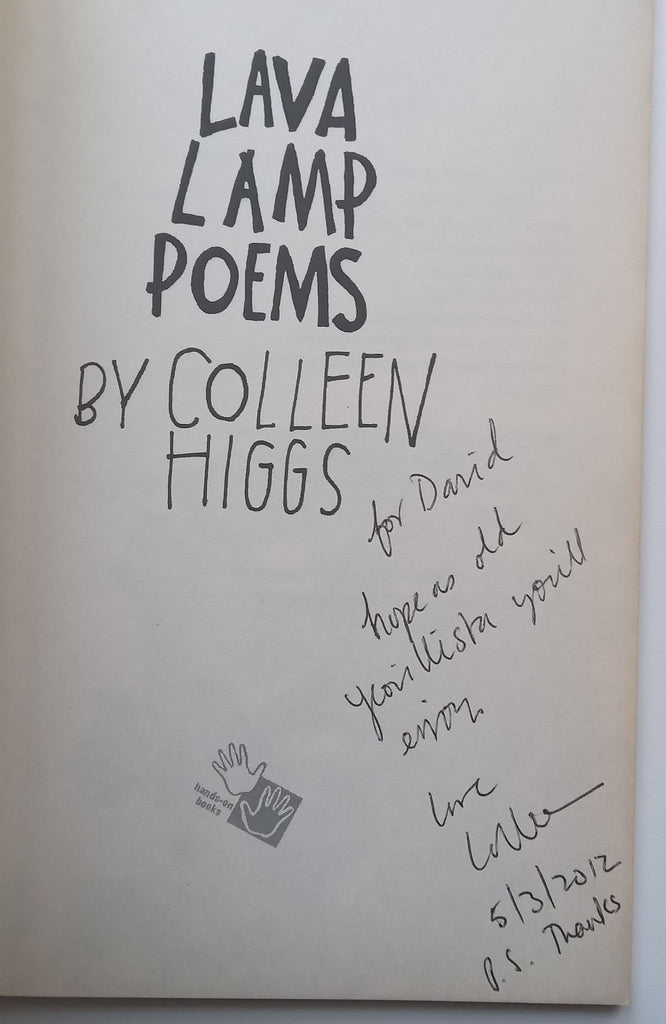 LAVA
LAMP
POEMS
BY COLLEEN
HIGGS
for David
hope as old
Yeovillista you'll
enjoy
love
Colleen
5/3/2012
P.S. Thanks
hands-on
books